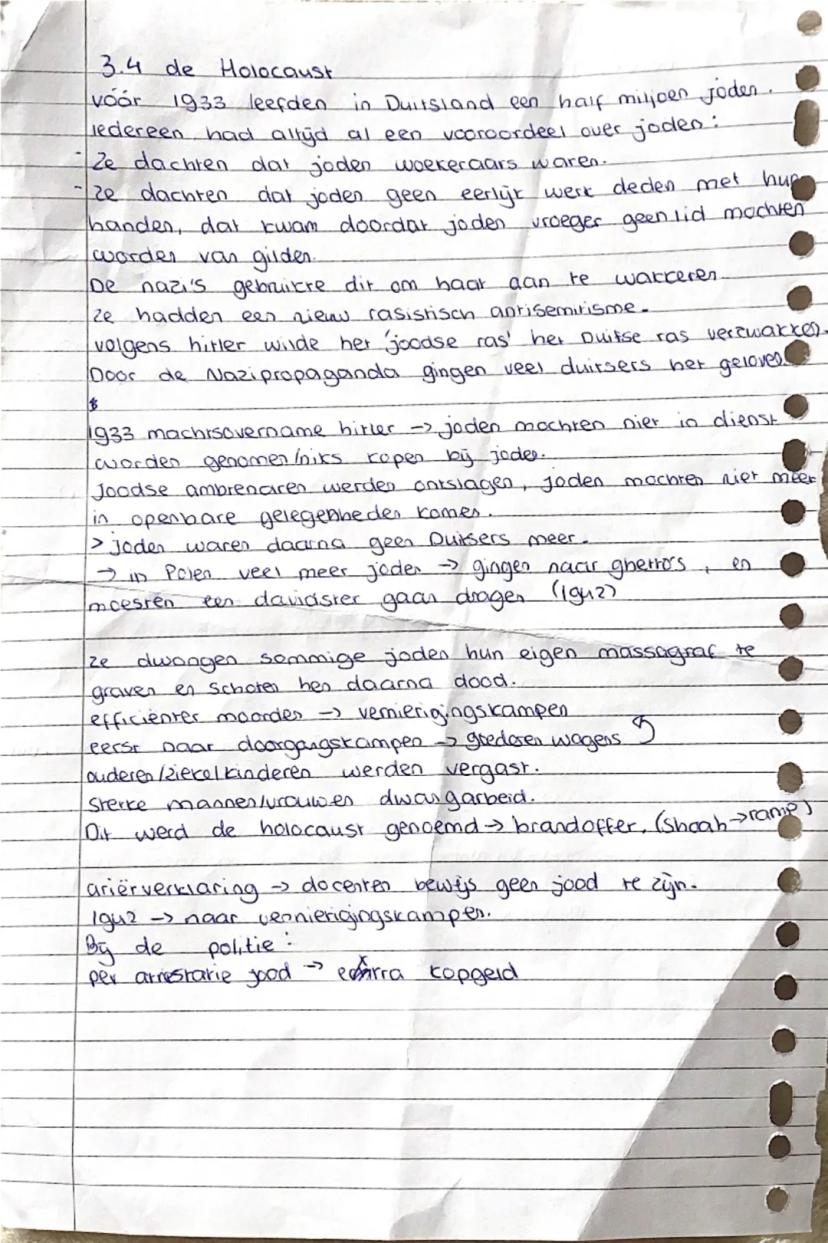 3.4 de Holocaust
vóór 1933 leefden in Duitsland een half miljoen joden.
Iedereen had altijd al een vooroordeel over joden:
- Ze dachten dat joden woekeraars waren.
- ze dachten dat joden geen eerlijk werk deden met hun
handen, dat kwam doordat joden vroeger geen lid mochten
worden van gilden.
De nazi's gebruikte dit om haat aan te wakkeren.
ze hadden een nieuw rasistisch antisemitisme.
volgens hitler wilde het 'joodse ras' het Duitse ras verzwakken.
Door de Nazipropaganda gingen veel duitsers het geloven
1933 machtsovername hitler -> joden mochten niet in dienst
worden genomen/niks kopen bij joden.
Joodse ambtenaren werden ontslagen, joden mochten niet meer
in openbare gelegenheden komen.
> joden waren daarna geen Duitsers meer.
-> in Polen veel meer joden -> gingen naar ghetto's, en
moesten een davidster gaan dragen (1942)
ze dwongen sommige joden hun eigen massagraf te
graven en schoten hen daarna dood.
efficiënter moorden -> vernietigingskampen
eerst naar doorgangskampen -> goederen wagens
ouderen/zieke/kinderen werden vergast.
Sterke mannen/vrouwen dwangarbeid.
Dit werd de holocaust genoemd -> brandoffer. (Shoah -> ramp)
ariërverklaring -> docenten bewijs geen jood te zijn.
1942 -> naar vernietigingskampen.
Bij de politie:
per arrestatie jood -> extra kopgeld